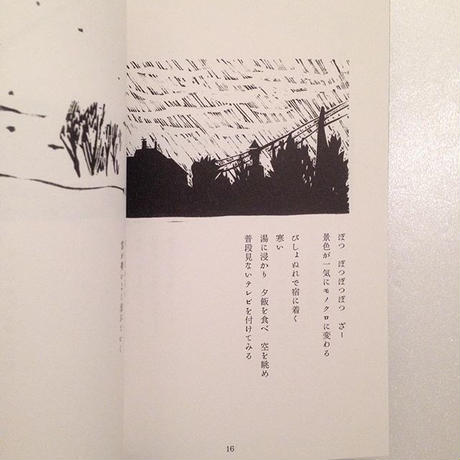 ぽつ　ぽつぽつぽつ　ざー
景色が一気にモノクロに変わる
びしょぬれで宿に着く
寒い
湯に浸かり　夕飯を食べ　空を眺め
普段見ないテレビを付けてみる
16